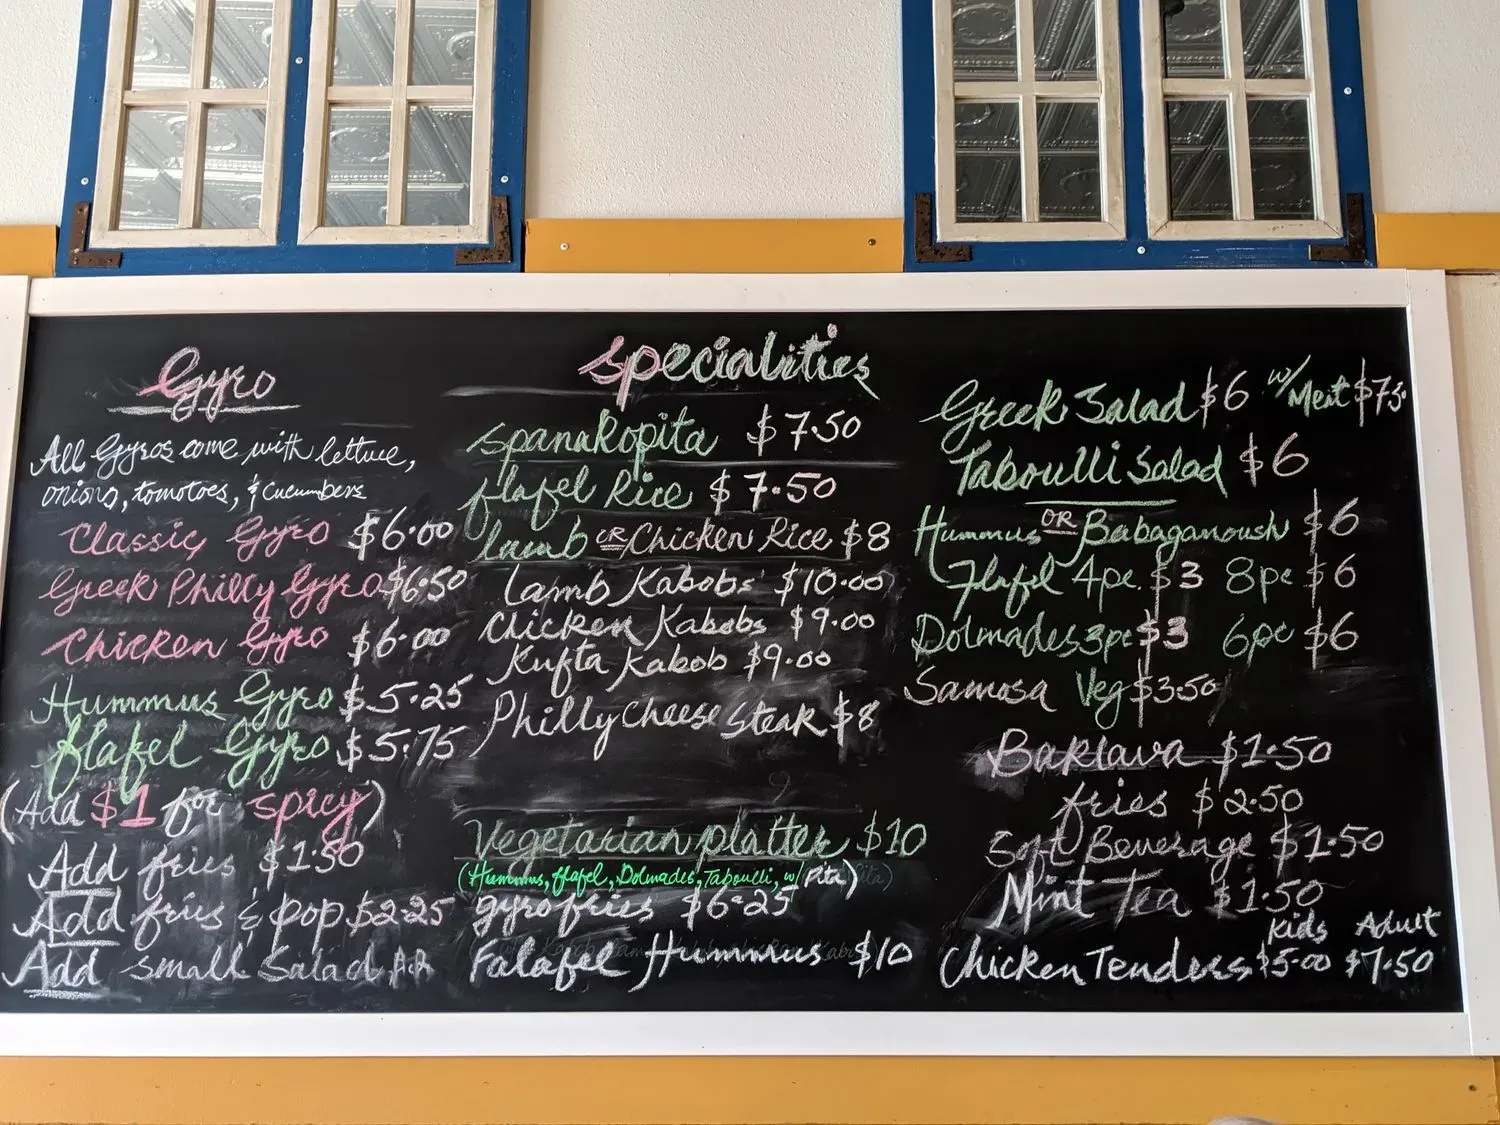 Gyro
All Gyros come with lettuce,
onions, tomotoes, & Cucumbers
Classic Gyro $6.00
Greek Philly Gyro $6.50
Chicken Gyro $6.00
Hummus Gyro $5.25
flafel Gyro $5.75
(Add $1 for spicy)
Add fries $1.50
Add fries & pop $2.25
Add small Salad
specialities
spanakopita $7.50
flafel Rice $7.50
lamb OR Chicken Rice $8
Lamb Kabobs $10.00
Chicken Kabobs $9.00
Kufta Kabob $9.00
Philly cheese steak $8
Vegetarian platter $10
(Hummus, flafel, Dolmades, Taboulli, w/ Pita)
gyro fries $6.25
Falafel Hummus $10
Greek Salad $6 w/ Meat $7.5
Taboulli Salad $6
Hummus OR Babaganoush $6
Flafel 4pc $3 8pc $6
Dolmades 3pc $3 6pc $6
Samosa Veg $3.50
Baklava $1.50
fries $2.50
Soft Beverage $1.50
Mint Tea $1.50
Kids Adult
Chicken Tenders $5.00 $7.50